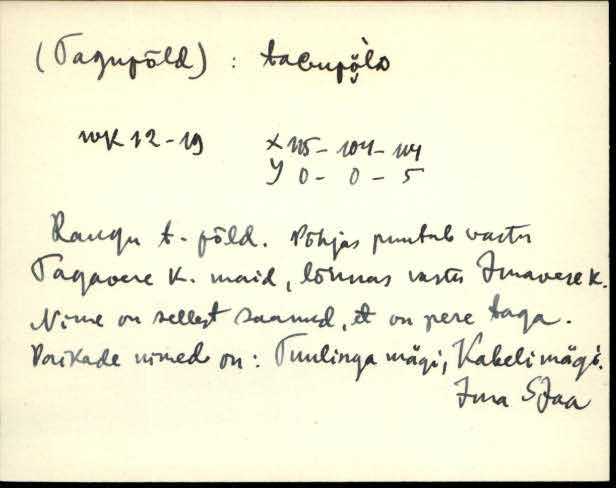 (Tagupõld) : taGupõ̬̀lD
WK 12-19 X 115 - 104 - 114
Y 0 - 0 - 5
Raugu t. põld. Põhjas puutub vastu
Tagavere k. maid, lõunas vastu Imavere k.
Nime on sellest saanud, et on pere taga.
Paikade nimed on: Tuulinga mägi, Kakeli mägi.
Ima SJaa